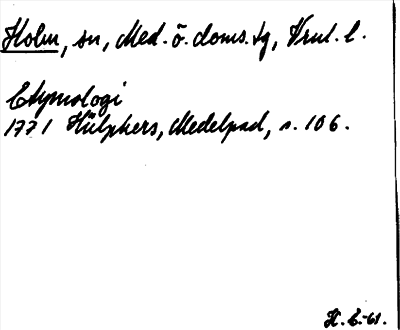 Holm, sn, Med. ö. doms. tg, Vrul. l.
Etymologi
1771 Hülphers, Medelpad, s. 106.
H. E-61.